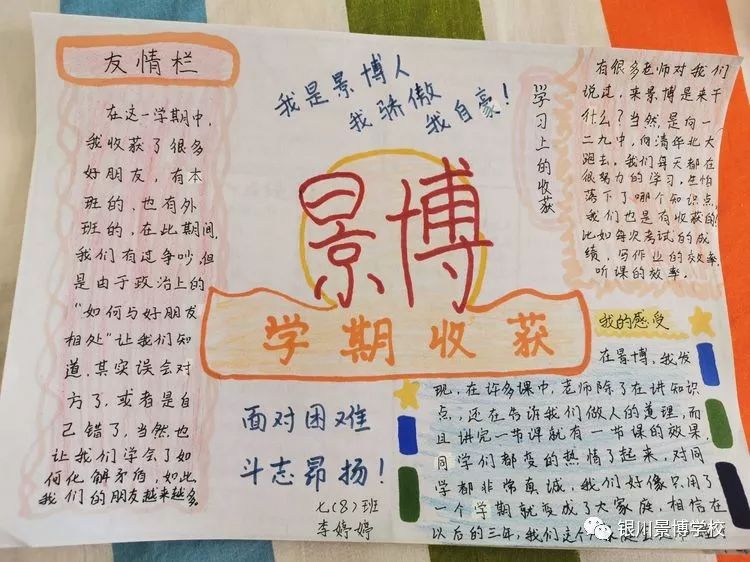 友情栏
在这一学期中,
我收获了很多
好朋友，有本
班的，也有外
班的，在此期间,
我们有过争吵,但
是由于政治上的
"如何与好朋友
相处"让我们知
道，其实误会对
方了，或者是自
己错了，当然也
让我们学会了如
何化解矛盾，如此,
我们的朋友越来越多
我是景博人
我骄傲
我自豪!
景博
学期收获
面对困难
斗志昂扬!
七(8)班
李婷婷
学习上的收获
有很多老师对我们
说过，来景博是来干
什么？当然是向一
二九中，向清华北大
跑去，我们每天都在
很努力的学习，生怕
落下了哪个知识点,
我们也是有收获的!
比如每次考试的成
绩，写作业的效率,
听课的效率.
我的感受
在景博，我发
现，在许多课中，老师除了在讲知识
点，还在告诉我们做人的道理，而
且讲完一节课就有一节课的效果,
同学们都变的热情了起来，对同
学都非常真诚，我们好像只用了
一个学期就变成了大家庭，相信在
以后的三年，我们这个
银川景博学校